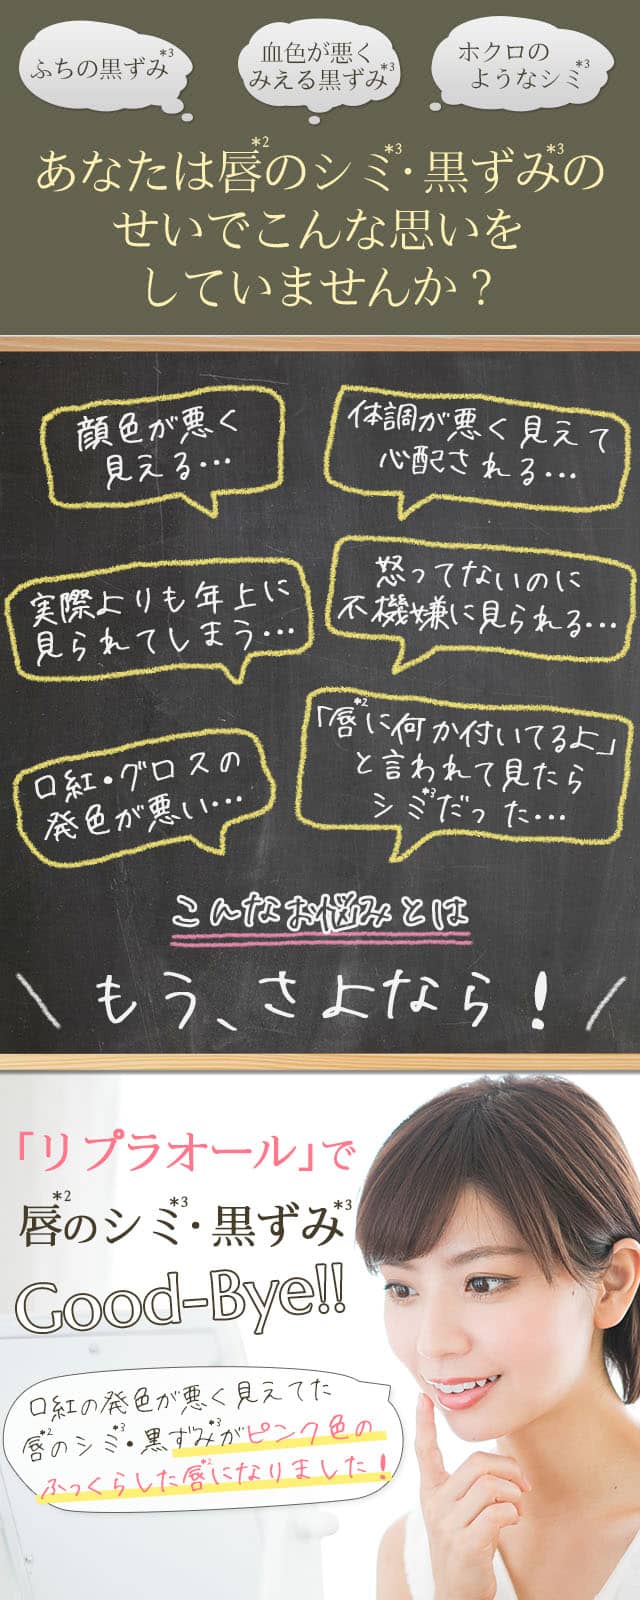 ふちの黒ずみ*3
血色が悪く
みえる黒ずみ*3
ホクロの
ようなシミ*3
あなたは唇*2のシミ*3・黒ずみ*3の
せいでこんな思いを
していませんか？
顔色が悪く
見える…
体調が悪く見えて
心配される…
実際よりも年上に
見られてしまう…
怒ってないのに
不機嫌に見られる…
口紅・グロスの
発色が悪い…
「唇*2に何か付いてるよ」
と言われて見たら
シミ*3だった…
こんなお悩みとは
もう、さよなら！
「リプラオール」で
唇*2のシミ*3・黒ずみ*3
Good-Bye!!
口紅の発色が悪く見えてた
唇*2のシミ*3・黒ずみ*3がピンク色の
ふっくらした唇*2になりました！